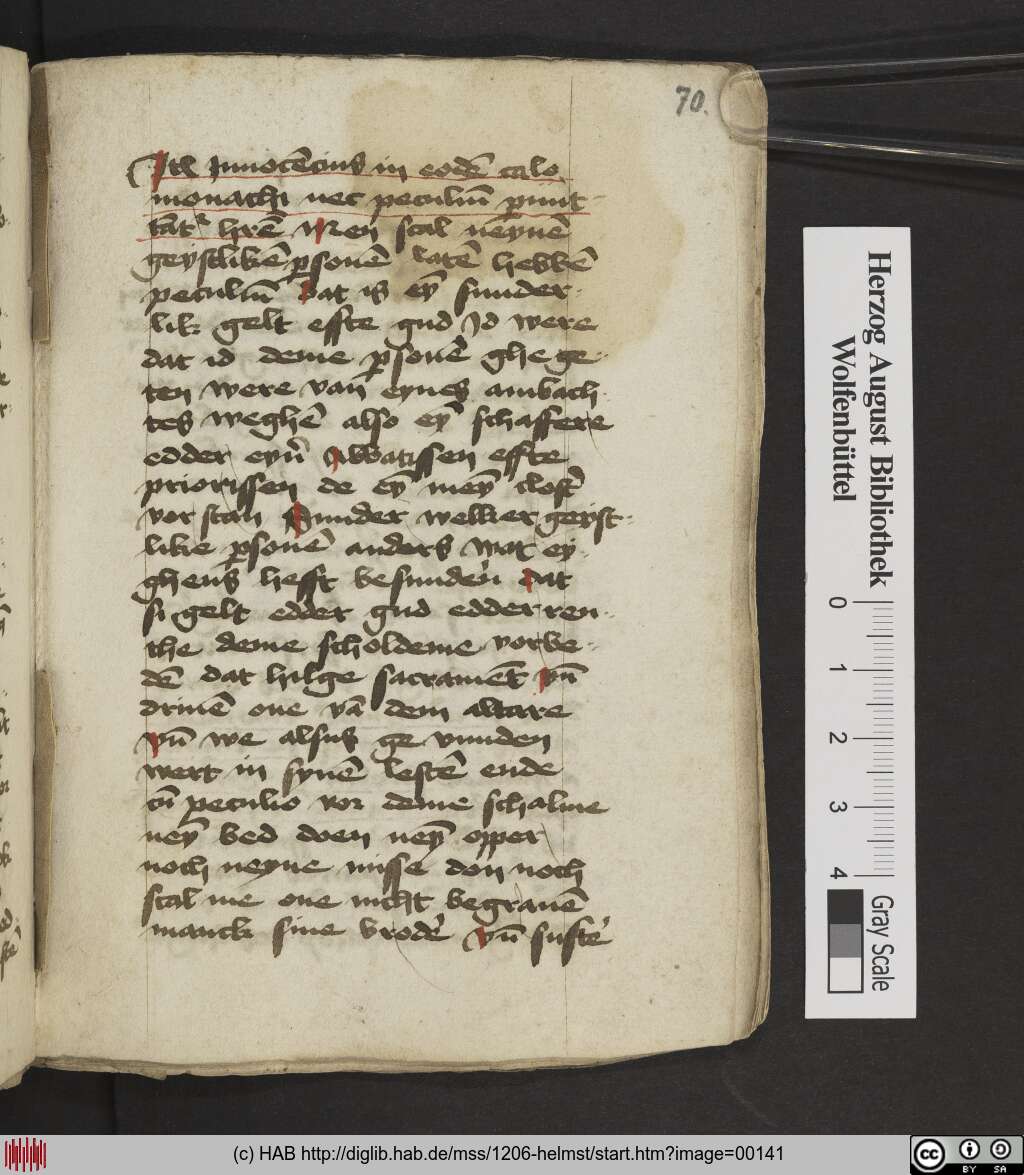 70.
Itē Innocēcius in eodē calo
monachi nec peculiū p̄mit
tāt̄ hr̄e Men scal neynē
geystlikē p̱sonē latē hebbē
peculiū dat is ey̅ sunder-
lik gelt effte gud Id were
dat id deme p̱sonē ghe ge-
ten were van̄ eynes ambach
tes weghē also ey̅ schaffere
edder eyn̄ Abbatissen effte
priorissen de ey̅ mey̅ clost̄
vor stan Sunder welker geyst-
like p̱sonē anders wat ey-
ghens hefft besunden̄ dat
si gelt edder gud edder ren-
the deme scholdeme vorbe-
dē dat hilge sacramēt vn̄
driuē one vā dem altare
vn̄ we alsus ge vunden
wert in synē lestē ende
cū peculio vor deme schalme
ney̅ bed doen ney̅ opper
noch neyne misse don noch
scal me one nicht begrauē
manck sine brodē vn̄ sustē
Herzog August Bibliothek
Wolfenbüttel
0 1 2 3 4
Gray Scale
(c) HAB http://diglib.hab.de/mss/1206-helmst/start.htm?image=00141
cc BY SA